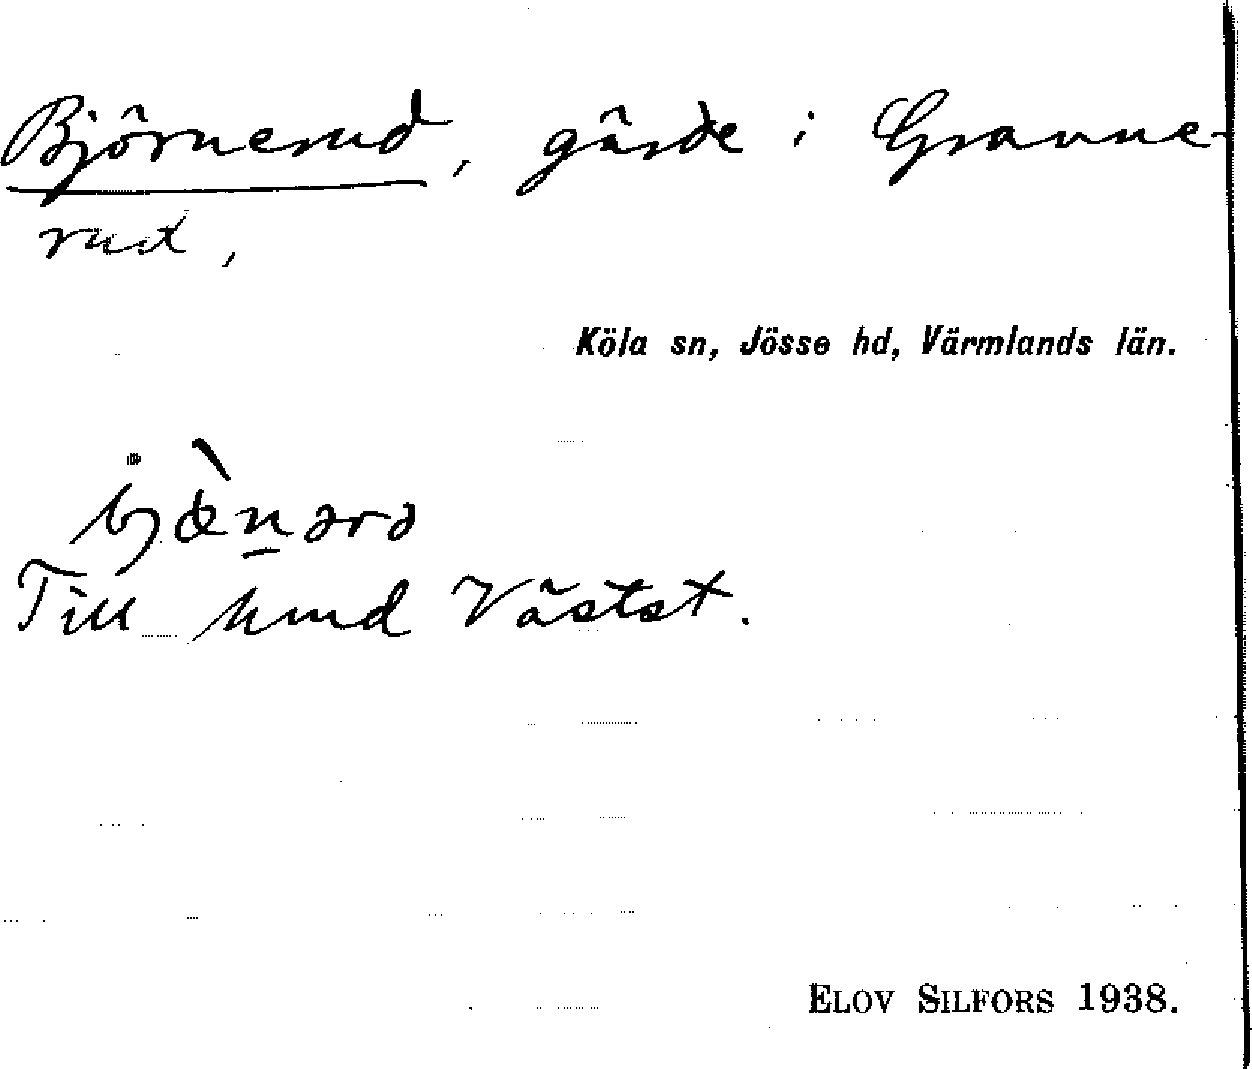 Björnerud, gärde i Granne-
rud,
Köla sn, Jösse hd, Värmlands län.
Till hmd Västst.
ELOV SILFORS 1938.